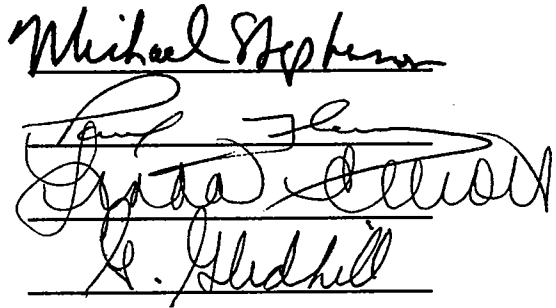 Michael Stephenson
Paul Fleming
Lynda Elliott
G. Gledhill